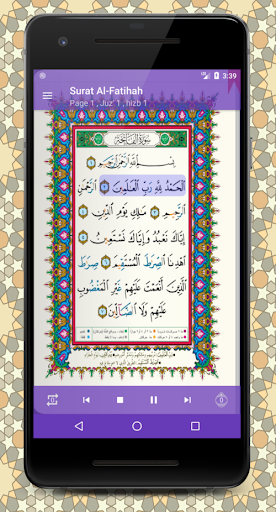 3:39
Surat Al-Fatihah
Page 1 , Juz' 1 , hizb 1
سورة الفاتحة
بِسْمِ اللَّهِ الرَّحْمَٰنِ الرَّحِيمِ ١
الْحَمْدُ لِلَّهِ رَبِّ الْعَالَمِينَ ٢ الرَّحْمَٰنِ
الرَّحِيمِ ٣ مَالِكِ يَوْمِ الدِّينِ ٤
إِيَّاكَ نَعْبُدُ وَإِيَّاكَ نَسْتَعِينُ ٥
اهْدِنَا الصِّرَاطَ الْمُسْتَقِيمَ ٦ صِرَاطَ
الَّذِينَ أَنْعَمْتَ عَلَيْهِمْ غَيْرِ الْمَغْضُوبِ
عَلَيْهِمْ وَلَا الضَّالِّينَ ٧